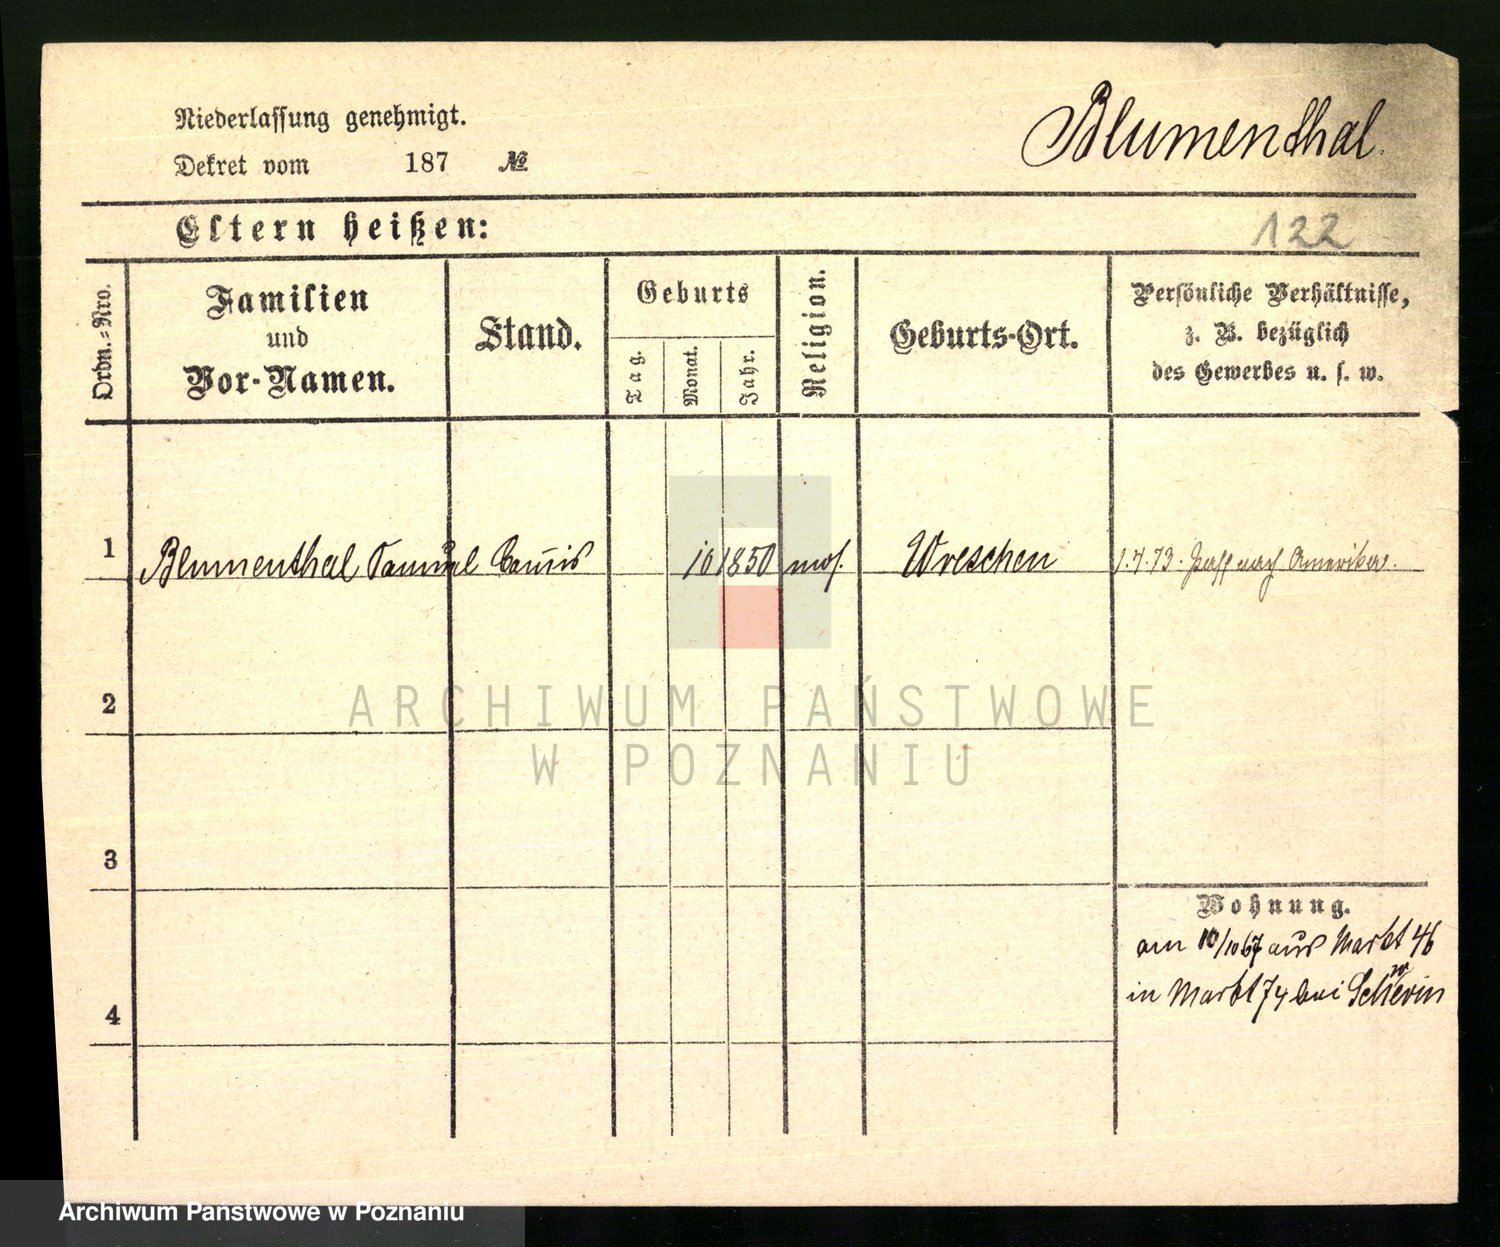 Niederlassung genehmigt.
Dekret vom 187 №
Blumenthal.
Eltern heißen:
122
Ordn.-Nro.
Familien
und
Vor-Namen.
Stand.
Geburts
Tag.
Monat.
Jahr.
Religion.
Geburts-Ort.
Persönliche Verhältnisse,
z. B. bezüglich
des Gewerbes u. s. w.
1 Blumenthal Samuel Comis 10 1850 mos. Wreschen 1.7.73. Pass nach Amerika.
2
3
4
Wohnung.
am 10/10 67 aus Markt 46
in Markt 74 bei
ARCHIWUM PAŃSTWOWE
W POZNANIU
Archiwum Państwowe w Poznaniu